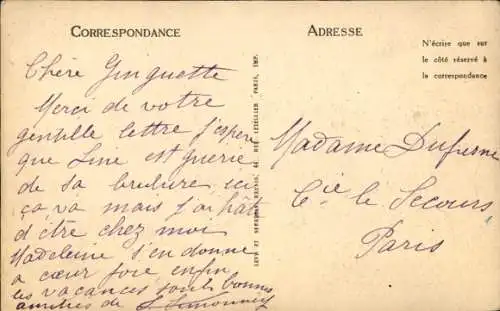 CORRESPONDANCE
ADRESSE
N'écrire que sur
le côté réservé à
la correspondance
Chère Ginguette
Merci de votre
gentille lettre j'espère
que Line est guerie
de sa brulure ici
ça va mais j'ai hâte
d'être chez moi
Madeleine s'en donne
a cœur joie enfin
les vacances sont bonnes
amitiés de
LEVY ET NEURDEIN RÉUNIS, 44, RUE LETELLIER, PARIS, IMP.
Madame Dufresne
Cie le Secours
Paris